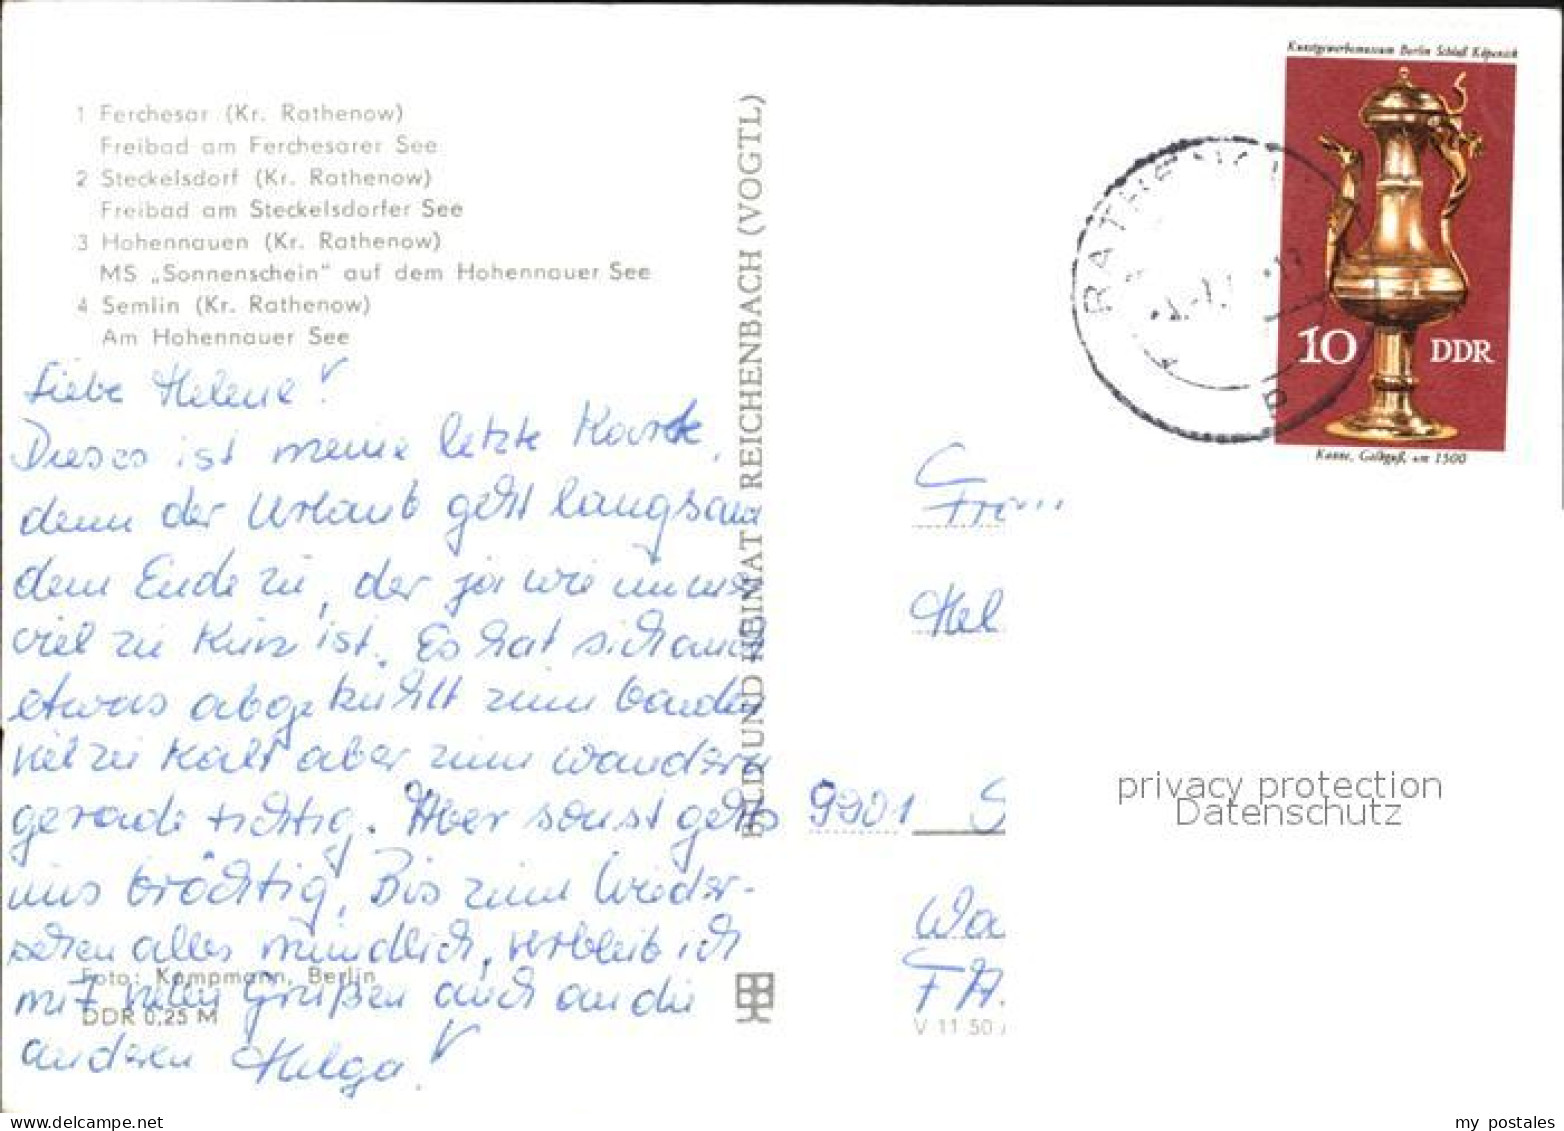 1 Ferchesar (Kr. Rathenow)
Freibad am Ferchesarer See
2 Steckelsdorf (Kr. Rathenow)
Freibad am Steckelsdorfer See
3 Hohennauen (Kr. Rathenow)
MS „Sonnenschein" auf dem Hohennauer See
4 Semlin (Kr. Rathenow)
Am Hohennauer See
Liebe Helene!
Dieses ist meine letzte Karte,
denn der Urlaub geht langsam
dem Ende zu, der ja wie immer
viel zu kurz ist. Es hat sich auch
etwas abgekühlt zum baden
viel zu kalt aber zum wandern
gerade richtig. Aber sonst gehts
uns prächtig, Bis zum Wieder-
sehen alles mündlich, verbleib ich
mit vielen Grüßen auch an die
anderen Helga!
Foto: Kampmann, Berlin
DDR 0,25 M
BILD UND HEIMAT REICHENBACH (VOGTL)
Kunstgewerbemuseum Berlin Schloß Köpenick
10 DDR
Kanne, Gelbguß, um 1500
RATHENOW 1
Hel
9901 S
Wa
V 11 50
privacy protection
Datenschutz
my postales